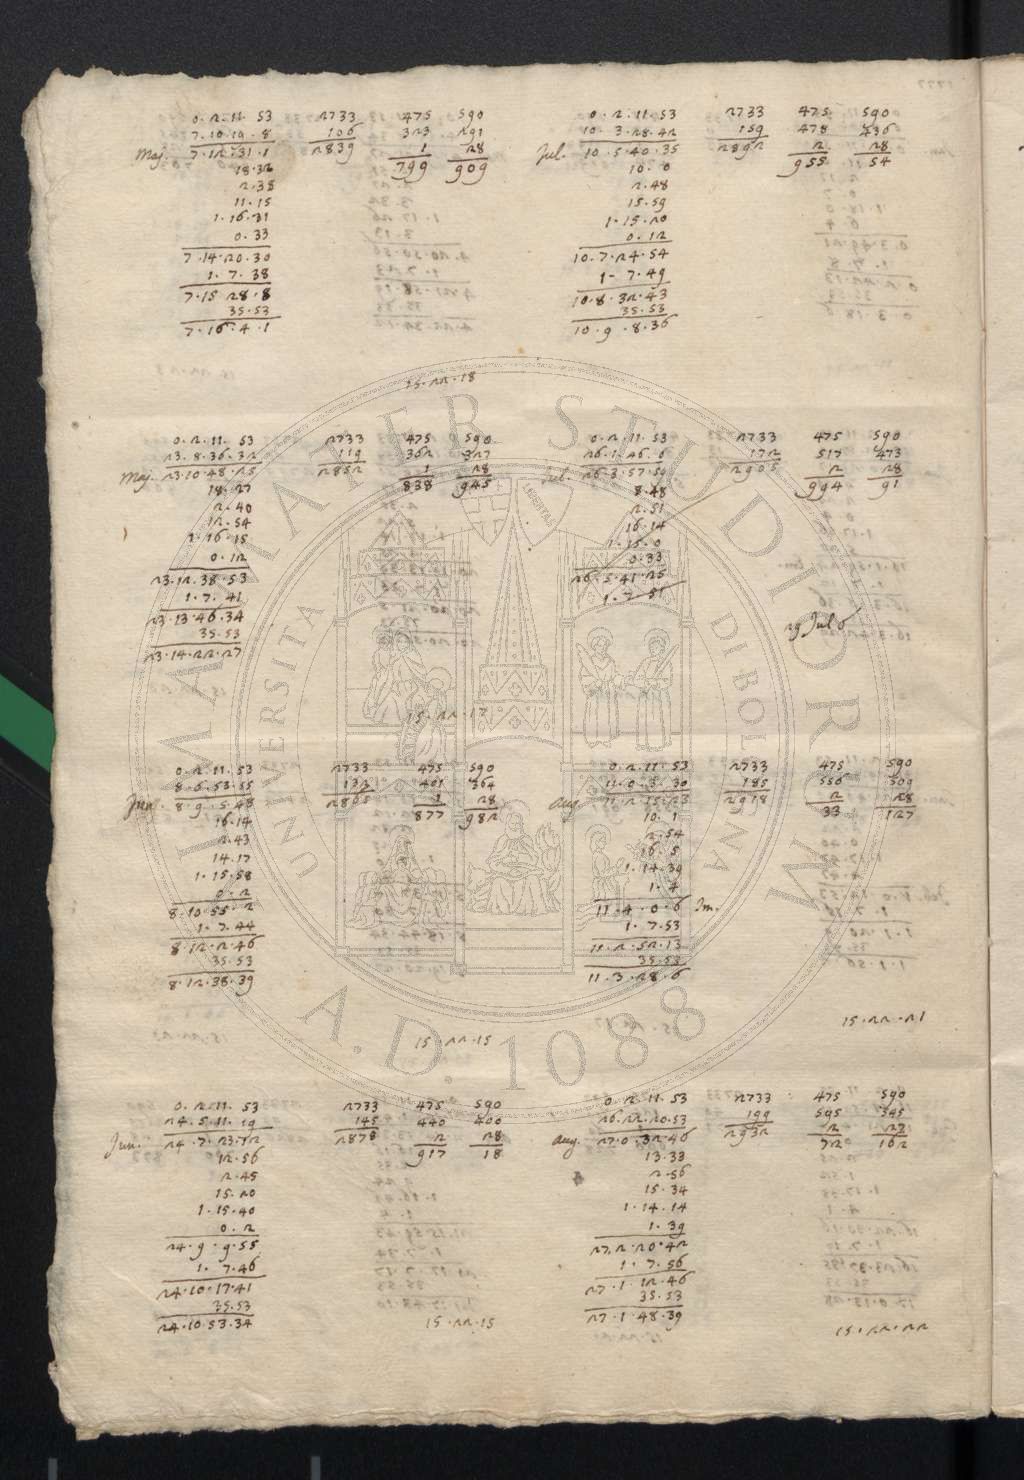 0. 2. 11. 53 2733 475 590
7. 10. 19. 8 106 323 291
Maj. 7. 12. 31. 1 2839 1 28
799 909
18. 32
2. 38
11. 15
1. 16. 31
0. 33
7. 14. 20. 30
1. 7. 38
7. 15 28. 8
35. 53
7. 16. 4. 1
0. 2. 11. 53 2733 475 590
10. 3. 28. 42 159 478 436
Jul. 10. 5. 40. 35 2892 2 28
955 54
10. 0
2. 48
15. 59
1. 15. 20
0. 12
10. 7. 24. 54
1. 7. 49
10. 8. 32. 43
35. 53
10. 9. 8. 36
15. 22. 18
0. 2. 11. 53 2733 475 590
23. 8. 36. 32 119 362 327
Maj. 23. 10. 48. 25 2852 1 28
838 945
18. 27
2. 40
12. 54
1. 16. 15
0. 12
23. 12. 38. 53
1. 7. 41
23. 13. 46. 34
35. 53
23. 14. 22. 27
0. 2. 11. 53 2733 475 590
26. 1. 46. 6 172 517 473
Jul. 26. 3. 57. 59 2905 2 28
994 91
8. 48
2. 51
16. 14
1. 15. 0
0. 33
26. 5. 41. 25
1. 7. 51
29 Jul 6
15. 22. 17
0. 2. 11. 53 2733 475 590
8. 6. 53. 55 132 401 364
Jun. 8. 9. 5. 48 2865 1 28
877 982
16. 14
2. 43
14. 17
1. 15. 58
0. 2
8. 10. 55. 2
1. 7. 44
8. 12. 2. 46
35. 53
8. 12. 38. 39
0. 2. 11. 53 2733 475 590
11. 0. 3. 30 185 556 509
aug. 11. 2. 15. 23 2918 2 28
33 127
10. 1
2. 54
16. 5
1. 14. 39
1. 4
11. 4. 0. 6 Im.
1. 7. 53
11. 2. 52. 13
35. 53
11. 3. 28. 6
15. 22. 21
15. 22. 15
0. 2. 11. 53 2733 475 590
24. 5. 11. 19 145 440 400
Jun. 24. 7. 23. 12 2878 2 28
917 18
12. 56
2. 45
15. 20
1. 15. 40
0. 2
24. 9. 9. 55
1. 7. 46
24. 10. 17. 41
35. 53
24. 10. 53. 34
15. 22. 15
0. 2. 11. 53 2733 475 590
26. 22. 20. 53 199 595 545
aug. 27. 0. 32. 46 2932 2 27
72 162
13. 33
2. 56
15. 34
1. 14. 14
1. 39
27. 2. 20. 42
1. 7. 56
27. 1. 12. 46
35. 53
27. 1. 48. 39
15. 22. 22
ALMA MATER STUDIORUM
UNIVERSITÀ DI BOLOGNA
A.D. 1088
LIBERTAS